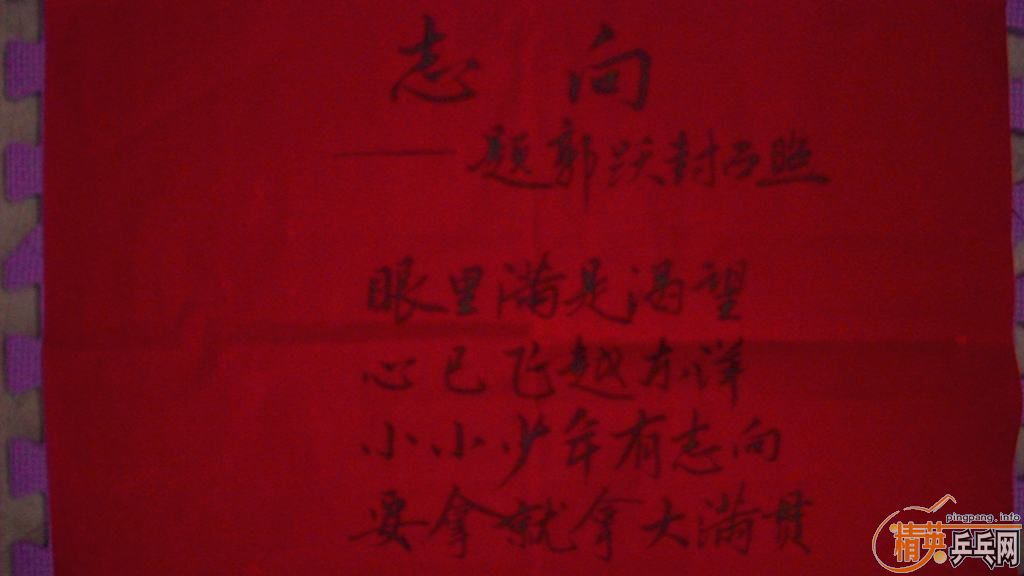 志向
——题郭跃封面照
眼里满是渴望
心已飞越东洋
小小少年有志向
要拿就拿大满贯
pingpang.info
精英乒乓网